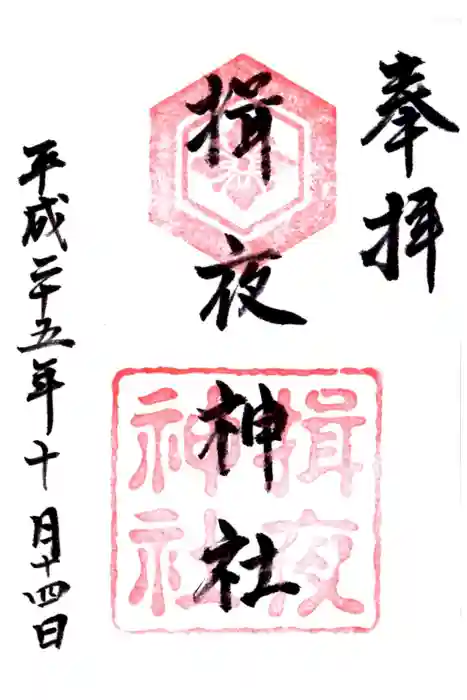 奉拝
揖夜神社
揖夜
神社
平成二十五年十月十四日